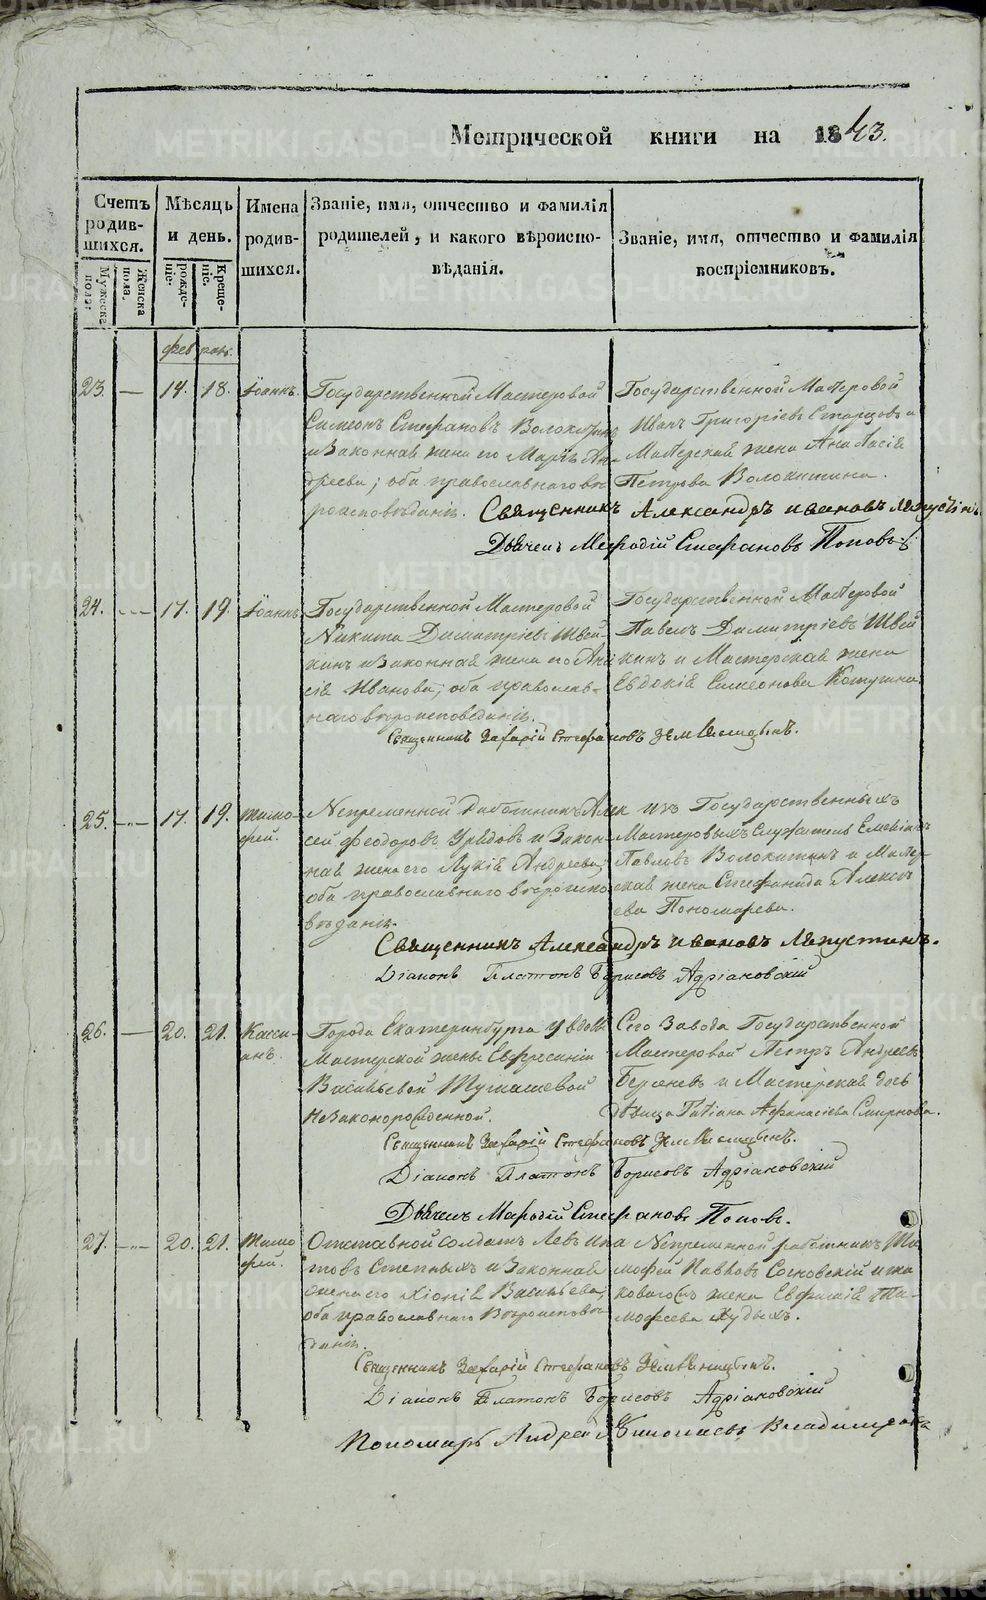 Метрической книги на 1843.
Счетъ родившихся.
Мужеска пола.
Женска пола.
Мѣсяць и день.
рожденіе.
Крещеніе.
Имена родившихся.
Званіе, имя, отчество и фамилія родителей, и какого вѣроисповѣданія.
Званіе, имя, отчество и фамилія воспріемниковъ.
23. — 14. 18. Іоаннъ.
Государственной Мастеровой
Симеонъ Стефановъ Волокитинъ
и Законная жена его Марѳа Ан-
дреева; оба православнаго вѣ
роисповѣданія.
Государственной Мастеровой
Иванъ Григорьевъ Старцовъ и
Мастерская жена Анастасія
Петрова Волокитина.
Священникъ Александръ Ивановъ Лапустинъ
Дьячекъ Меѳодій Стефановъ Поповъ
24. — 17. 19. Іоаннъ
Государственной Мастеровой
Никита Димитріевъ Швей-
кинъ и Законная жена его Ана
сія Иванова; оба православ-
наго вѣроисповѣданія.
Государственной Мастеровой
Павелъ Димитріевъ Швей
кинъ и Мастерская жена
Евдокія Симеонова
Священникъ Захарій Стефановъ
25. — 17. 19. Тимо-
ѳей.
Непременной работникъ Алек
сей Ѳеодоровъ и Закон-
ная жена его Лукія Андреева;
оба православнаго вѣроиспо
вѣданія.
изъ Государственныхъ
Мастеровыхъ Служитель
Павловъ Волокитинъ и Мастер-
ская жена Стефанида Алексѣ
ева Пономарева.
Священникъ Александръ Ивановъ Лапустинъ.
Діаконъ Платонъ Борисовъ Адріановскій
26. — 20. 21. Касси-
анъ.
Города Екатеринбурга у вдовы
Мастерской жены Евфросиніи
Васильевой Тумашевой
Незаконорожденной.
Сего Завода Государственной
Мастеровой Петръ Андреевъ
и Мастерская дочь
дѣвица Татіана Аѳанасіева Смирнова.
Священникъ Захарій Стефановъ
Діаконъ Платонъ Борисовъ Адріановскій
Дьячекъ Меѳодій Стефановъ Поповъ.
27. — 20. 21. Тимо
ѳей.
Отставной солдатъ Левъ Ипа
товъ Степныхъ и Законная
жена его Хіонія Васильева;
оба православнаго Вѣроисповѣ
данія.
Непременной работникъ Ти
моѳей Павловъ Сосновскій и та
коваго жъ жена Евфимія Ти-
моѳеева Худыхъ.
Священникъ Захарій Стефановъ
Діаконъ Платонъ Борисовъ Адріановскій
Пономарь Андрей Владимирова
METRIKI.GASO-URAL.RU